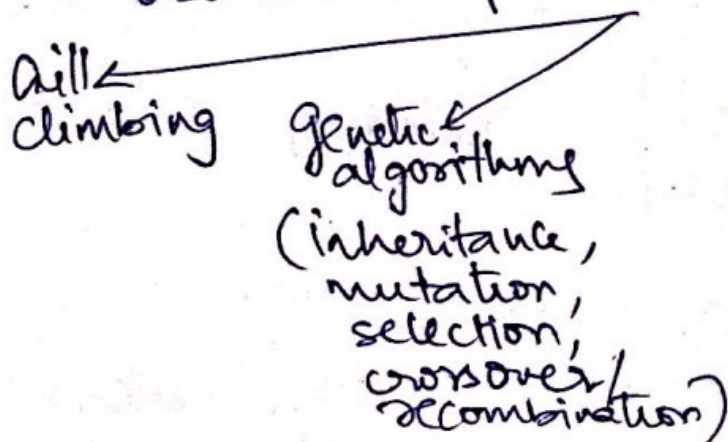 hill
climbing
genetic
algorithms
(inheritance,
mutation,
selection,
crossover/
recombination)